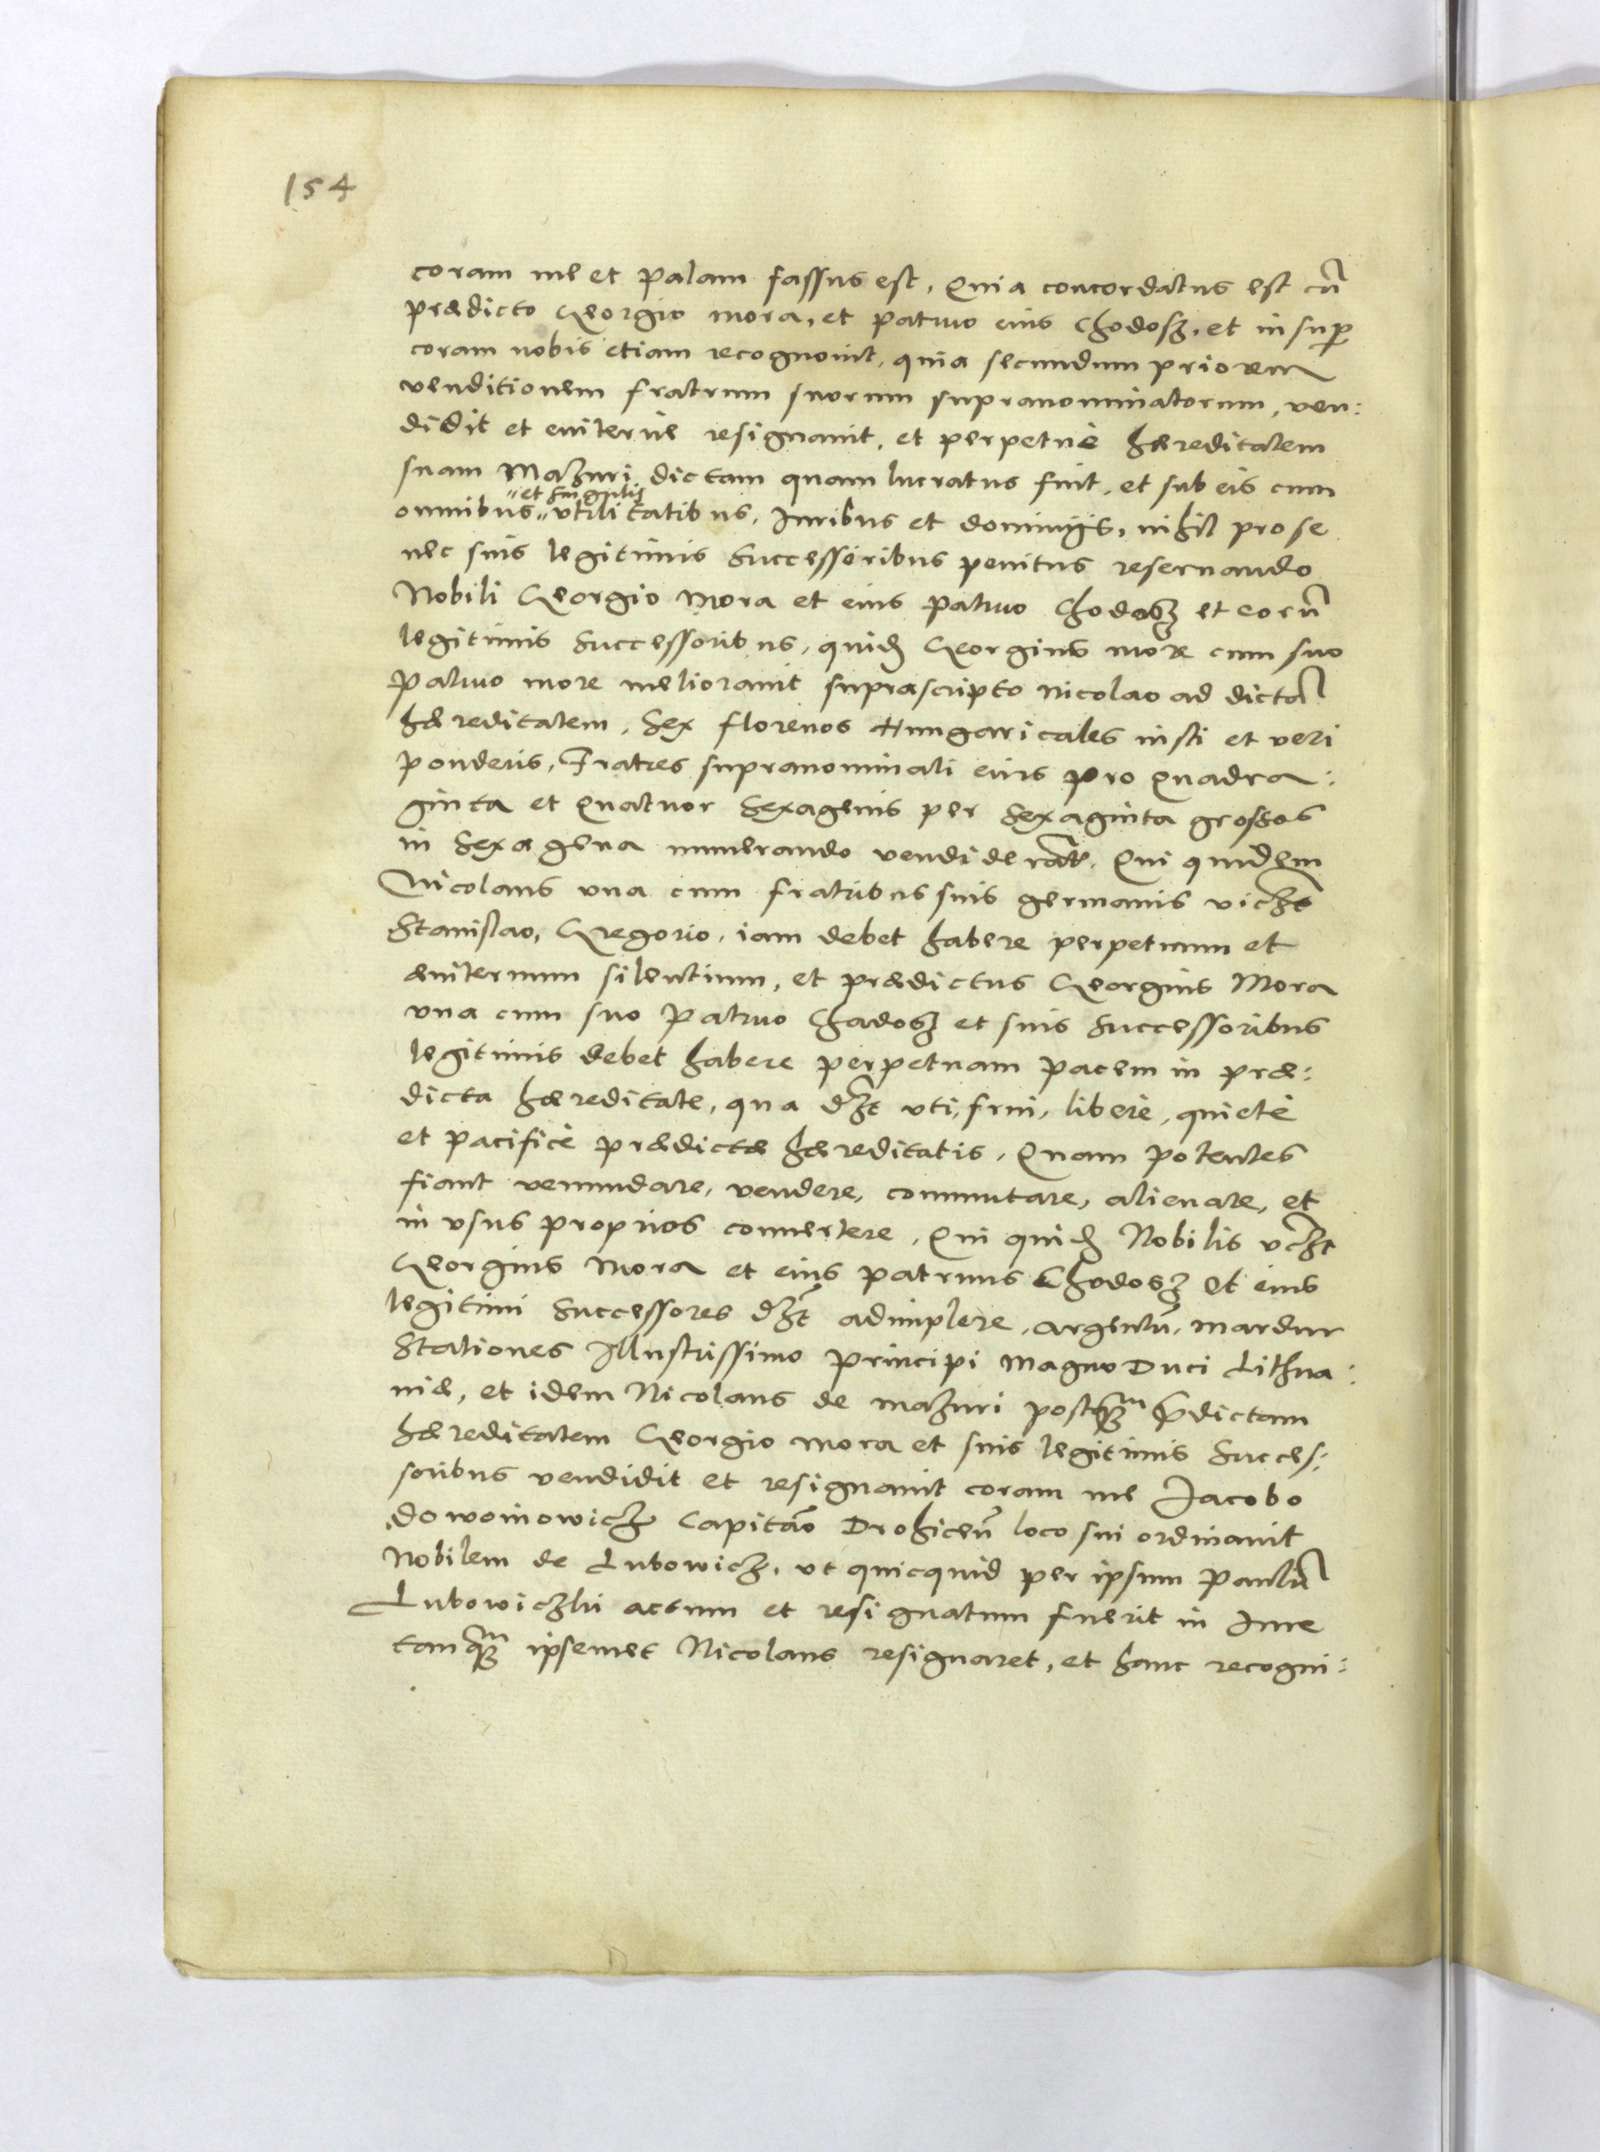 154
coram me et palam fassus est, Quia concordatus est cũ
prædicto Georgio mora, et patruo eius Chodosz, et insup
coram nobis etiam recognouit, quia secundum priorem
venditionem fratrum suorum supranominatorum, ven:
didit et euiterne resignauit, et perpetuè hæreditatem
suam Mazuri dictam quam lucratus fuit, et sub eis cum
et singulis
omnibus vtilitatibus, Iuribus et dominijs, nihil pro se
nec suis legitimis Successoribus penitus reseruando
Nobili Georgio Mora et eius patruo Chodosz et eorũ
legitimis Successoribus, quid Georgius more cum suo
patruo more meliorauit suprascripto Nicolao ad dictã
hæreditatem, Sex florenos Hungaricales iusti et veri
ponderis, Fratres supranominati eius pro Quadra:
ginta et Quatuor Sexagenis per Sexaginta grossos
in Sexagena numerando vendiderãt. Qui quidem
Nicolaus vna cum fratribus suis germanis vicht
Stanislao, Gregorio, iam debet habere perpetuum et
æuiternum silentium, et prædictus Georgius Mora
vna cum suo patruo Chadosz et suis Successoribus
legitimis debet habere perpetuam pacem in præ:
dicta hæreditate, qua dzt vti, frui, liberè, quietè
et pacificè prædictæ hæreditatis, Quam potentes
fiant venundare, vendere, commutare, alienare, et
in vsus proprios conuertere, Qui quid Nobilis vczt
Georgius Mora et eius patruus Chodosz et eius
legitimi Successores dzt adimplere, argentũ, mardur
Stationes Illustrissimo Principi Magno Duci Lithua:
niæ, et idem Nicolaus de mazuri postqm prdictam
hæreditatem Georgio mora et suis legitimis Succes:
soribus vendidit et resignauit coram me Iacobo
dowoinowicz Capitão Drohiceñ loco sui ordinauit
Nobilem de Lubowicz, vt quicquid per ipsum Paulũ
Lubowiczki actum et resignatum fuerit in Iure
tanqm ipsemet Nicolaus resignaret, et hanc recogni: